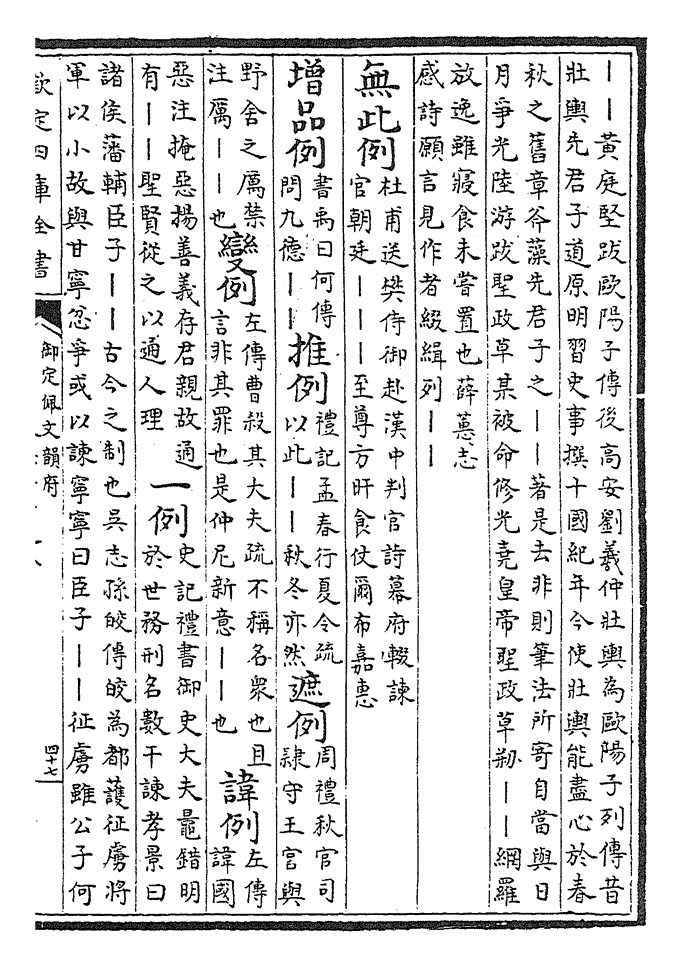 ——黄庭堅跋歐陽子傳後高安劉羲仲壯輿為歐陽子列傳昔
壯輿先君子道原明習史事撰十國紀年今使壯輿能盡心於春
秋之舊章斧藻先君子之——著是去非則筆法所寄自當與日
月爭光陸游跋聖政草某被命修光堯皇帝聖政草刱——網羅
放逸雖寢食未嘗置也薛蕙志
感詩願言見作者綴緝列——
無此例
杜甫送樊侍御赴漢中判官詩幕府輟諫
官朝廷———至尊方旰食仗爾布嘉惠
增品例
書禹曰何傳
問九德——
推例
禮記孟春行夏令疏
以此——秋冬亦然
遮例
周禮秋官司
隷守王宮與
野舍之厲禁
注厲——也
變例
左傳曹殺其大夫疏不稱名衆也且
言非其罪也是仲尼新意——也
諱例
左傳
諱國
惡注掩惡揚善義存君親故通
有——聖賢從之以通人理
一例
史記禮書御史大夫鼂錯明
於世務刑名數干諫孝景曰
諸侯藩輔臣子——古今之制也吳志孫皎傳皎為都護征虜將
軍以小故與甘寧忿爭或以諫寧寧曰臣子——征虜雖公子何
欽定四庫全書
御定佩文韻府
四十七